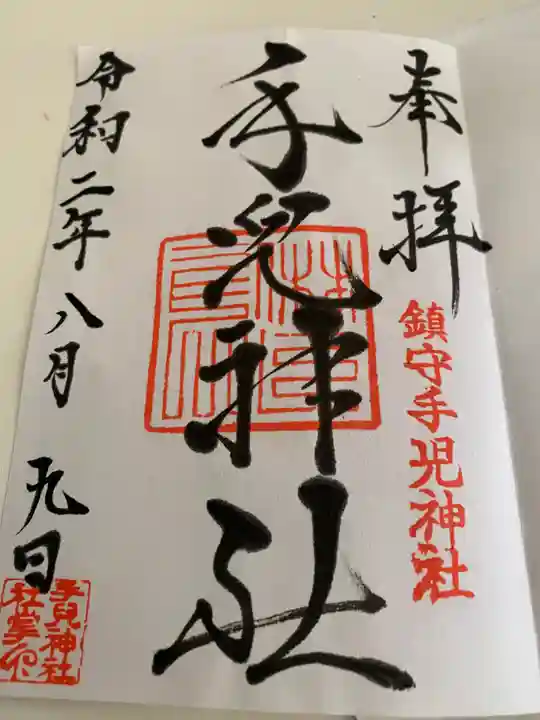 奉拝
鎮守手児神社
手児神社
令和二年八月九日
手児神社
社掌之印